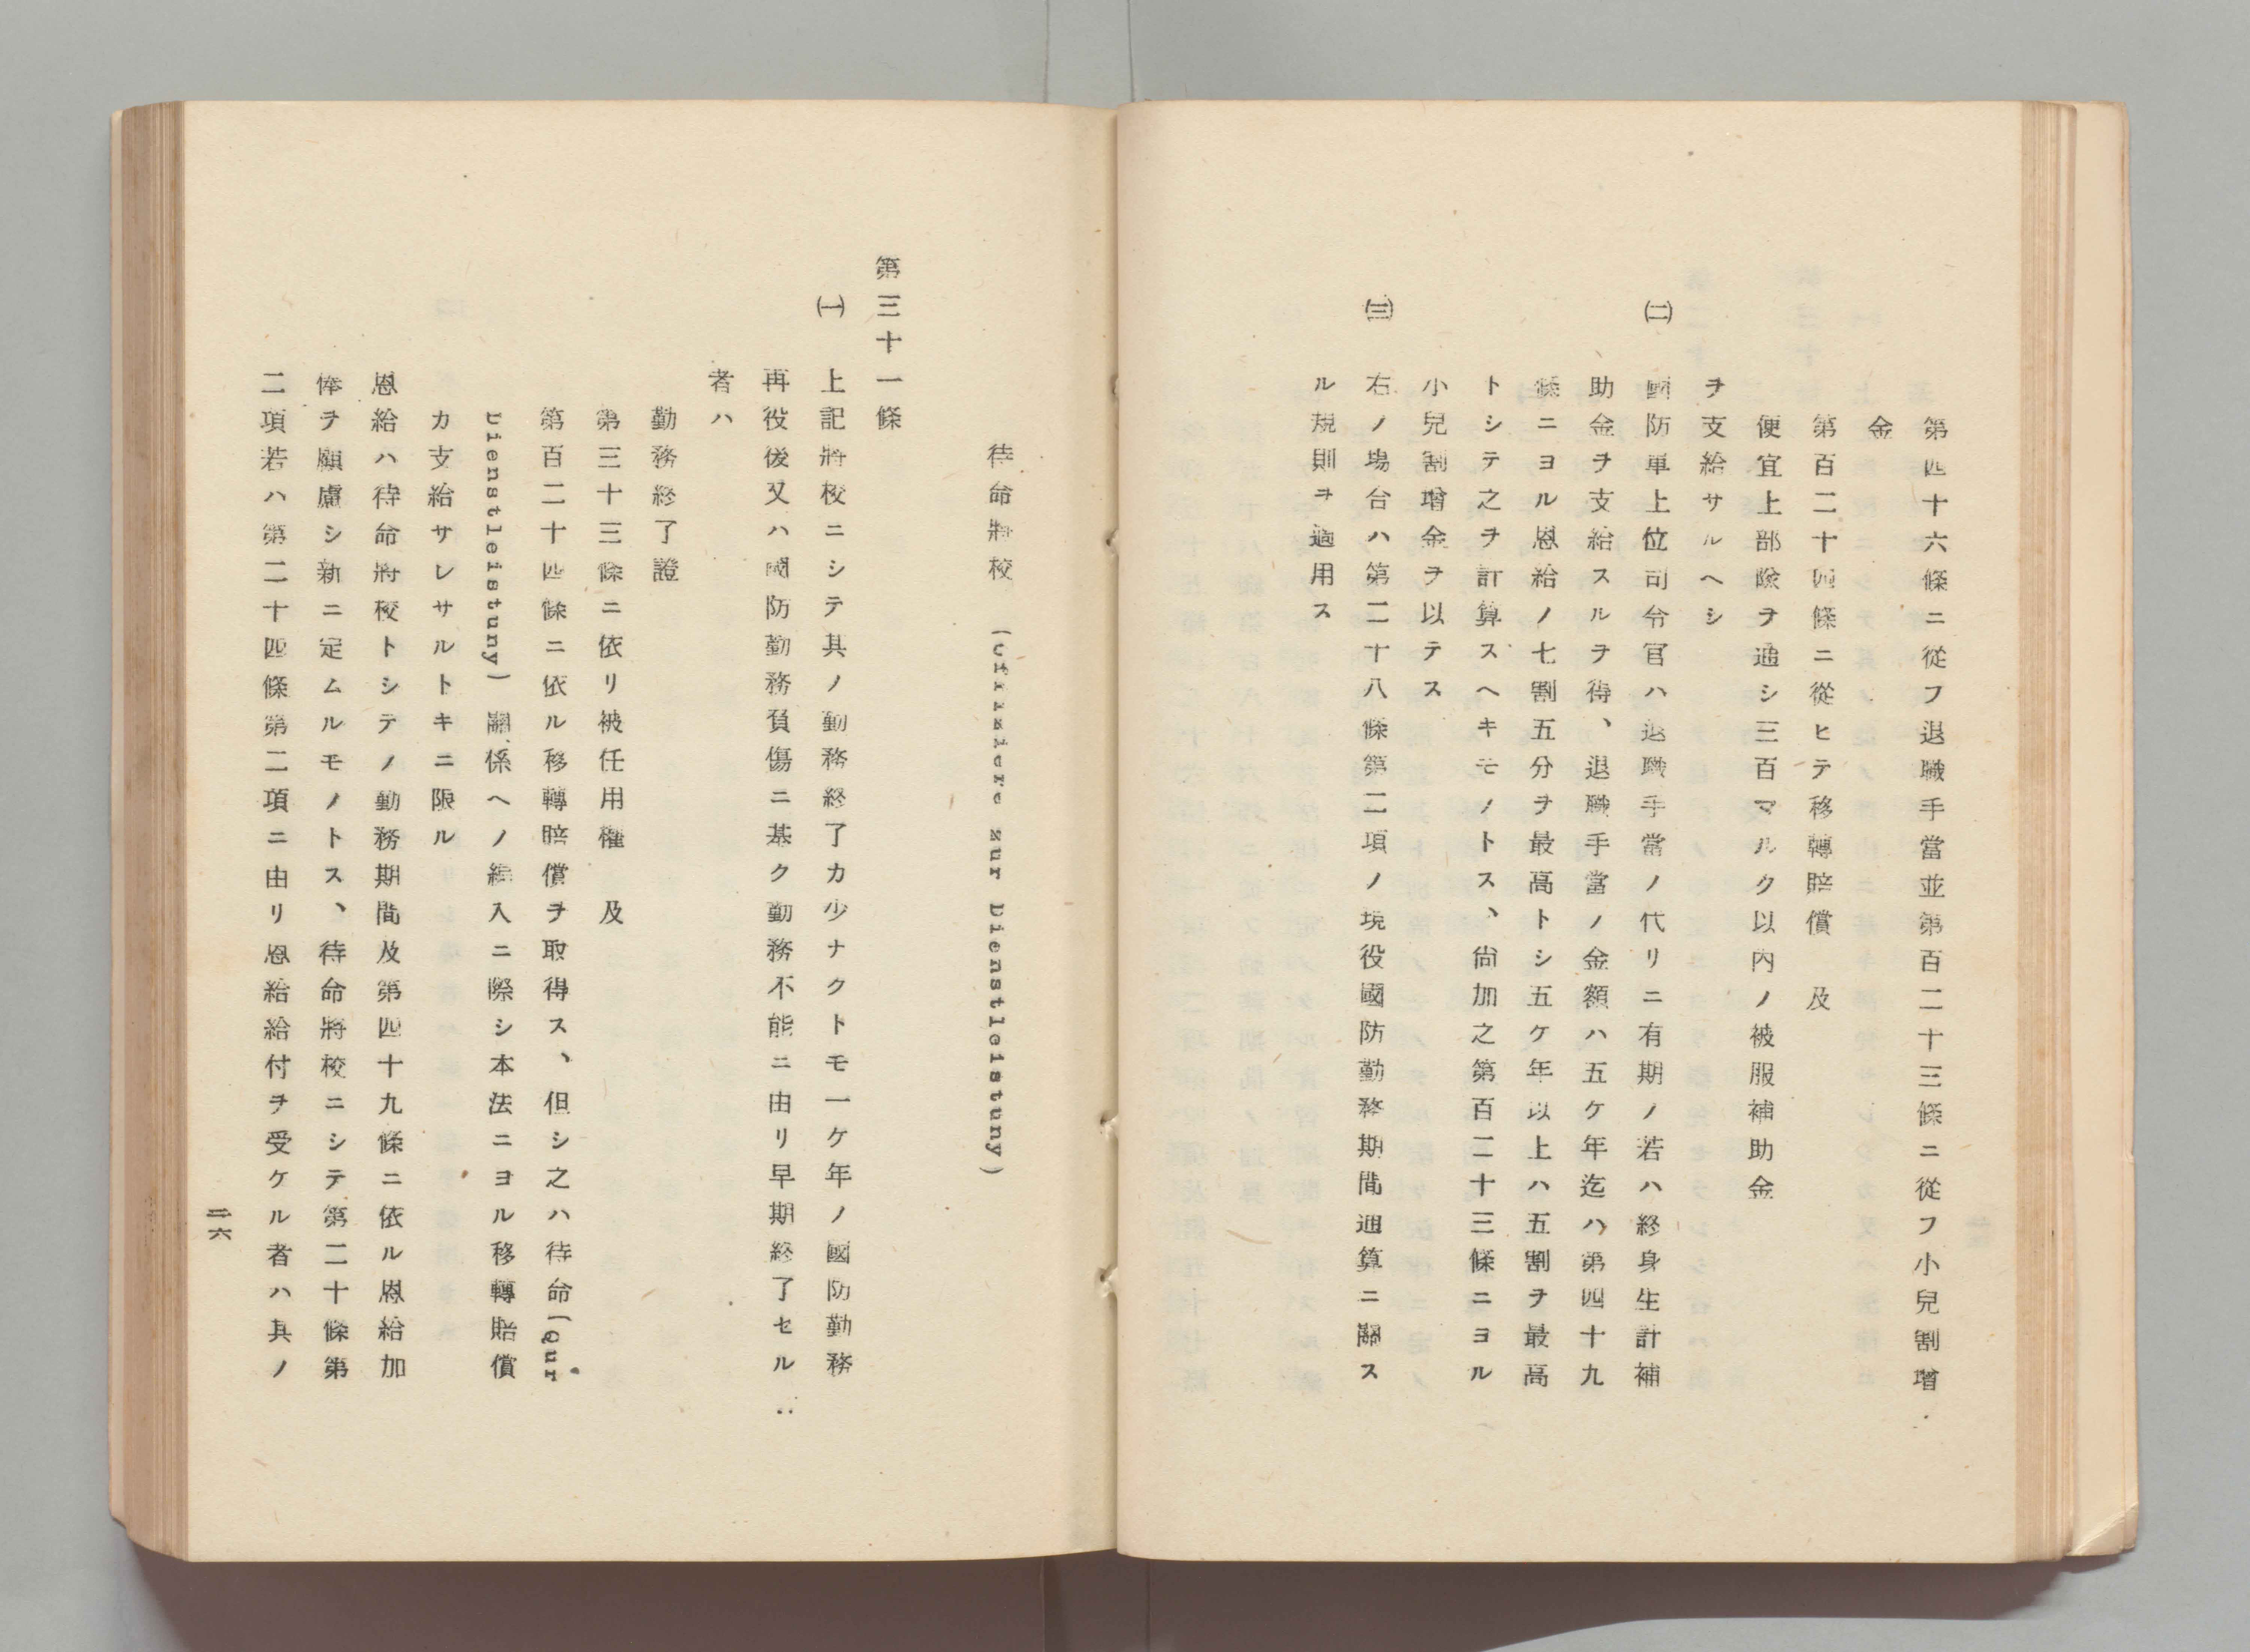 第四十六條ニ從フ退職手當並第百二十三條ニ從フ小兒割增
金
第百二十四條ニ從ヒテ移轉賠償　及
便宜上部險ヲ通シ三百マルク以內ノ被服補助金
ヲ支給サルヘシ
㈡　國防軍上位司令官ハ退職手當ノ代リニ有期ノ若ハ終身生計補
助金ヲ支給スルヲ待、退職手當ノ金額ハ五ケ年迄ハ第四十九
條ニヨル恩給ノ七割五分ヲ最高トシ五ケ年以上ハ五割ヲ最高
トシテ之ヲ計算スヘキモノトス、尙加之第百二十三條ニヨル
小兒割增金ヲ以テス
㈢　右ノ場合ハ第二十八條第二項ノ現役國防勤務期間通算ニ關ス
ル規則ヲ適用ス
待命將校　(Offiziere zur Dienstleistuny)
第三十一條
㈠　上記將校ニシテ其ノ勤務終了カ少ナクトモ一ケ年ノ國防勤務
再役後又ハ國防勤務負傷ニ基ク勤務不能ニ由リ早期終了セル‥
者ハ
勤務終了證
第三十三條ニ依リ被任用權　及
第百二十四條ニ依ル移轉賠償ヲ取得ス、但シ之ハ待命(Qur
Dienstleistuny)關係ヘノ編入ニ際シ本法ニヨル移轉賠償
カ支給サレサルトキニ限ル
恩給ハ待命將校トシテノ勤務期間及第四十九條ニ依ル恩給加
俸ヲ願慮シ新ニ定ムルモノトス、待命將校ニシテ第二十條第
二項若ハ第二十四條第二項ニ由リ恩給給付ヲ受ケル者ハ其ノ
二六